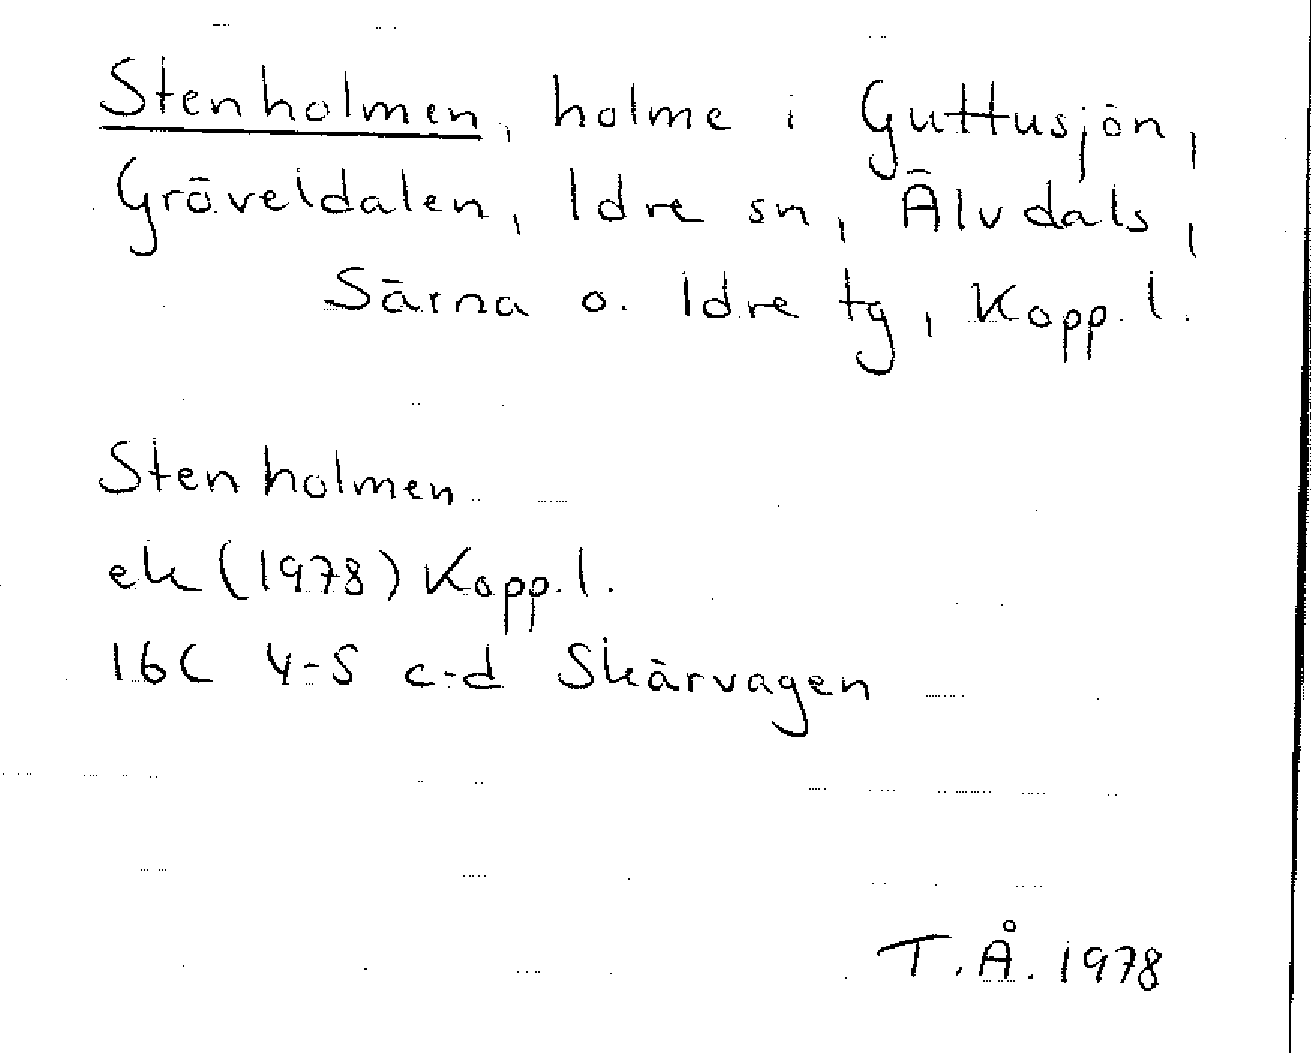 Stenholmen, holme i Guttusjön,
Gröveldalen, Idre sn, Älvdals,
Särna o. Idre tg, Kopp. l.
Stenholmen
ek (1978) Kopp. l.
16C 4-5 c-d Skärvagen
T.Å. 1978